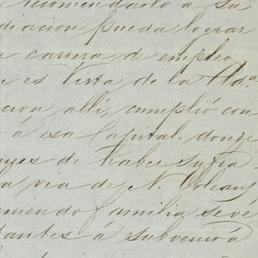 recomendarlo a su
diacion pueda lograr
a carrera de empleo
e es Vista de la Hda.
cion allí, cumplió con
á esa Capital donde
yes de haber sufra-
a via de N. Orleans
umendo familia, se vé
tantes á subvenir á